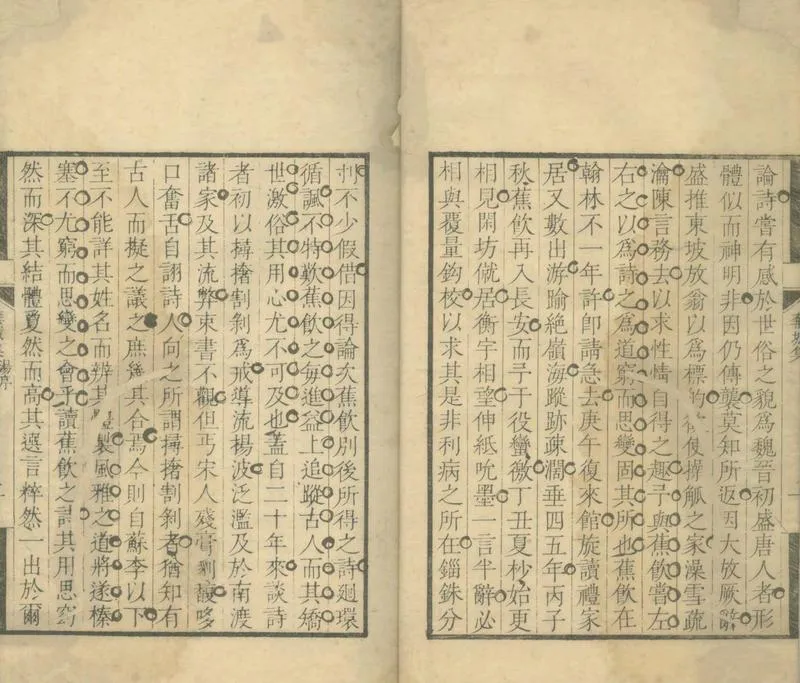 論詩嘗有感於世俗之貌爲魏晉初盛唐人者形
體似而神明非因仍傳襲莫知所返因大放厥辭
盛推東坡放翁以爲標的使撏觚之家澡雪疏
瀹陳言務去以求性情自得之趣予與蕉飲嘗左
右之以爲詩之爲道窮而思變固其所也蕉飲在
翰林不一年許卽請急去庚午復來館旋讀禮家
居又數出游踰絕嶺海蹤跡疎濶垂四五年丙子
秋蕉飲再入長安而予于役蠻徼丁丑夏杪始更
相見閑坊僦居衡宇相望伸紙吮墨一言半辭必
相與覆量鈎校以求其是非利病之所在錙銖分
刌不少假借因得論次蕉飲別後所得之詩迴環
循諷不特歎蕉飲之每進益上追蹤古人而其矯
世激俗其用心尤不可及也蓋自二十年來談詩
者初以撏撦割剝爲戒導流楊波泛濫及於南渡
諸家及其流弊束書不觀但丐宋人殘膏剩馥哆
口奮舌自詡詩人向之所謂撏撦割剝者猶知有
古人而擬之議之庶幾其合焉今則自蘇李以下
至不能詳其姓名而辨其製風雅之道將遂榛
塞不尤窮而思變之會乎讀蕉飲之詩其用思窈
然而深其結體戛然而高其選言粹然一出於爾